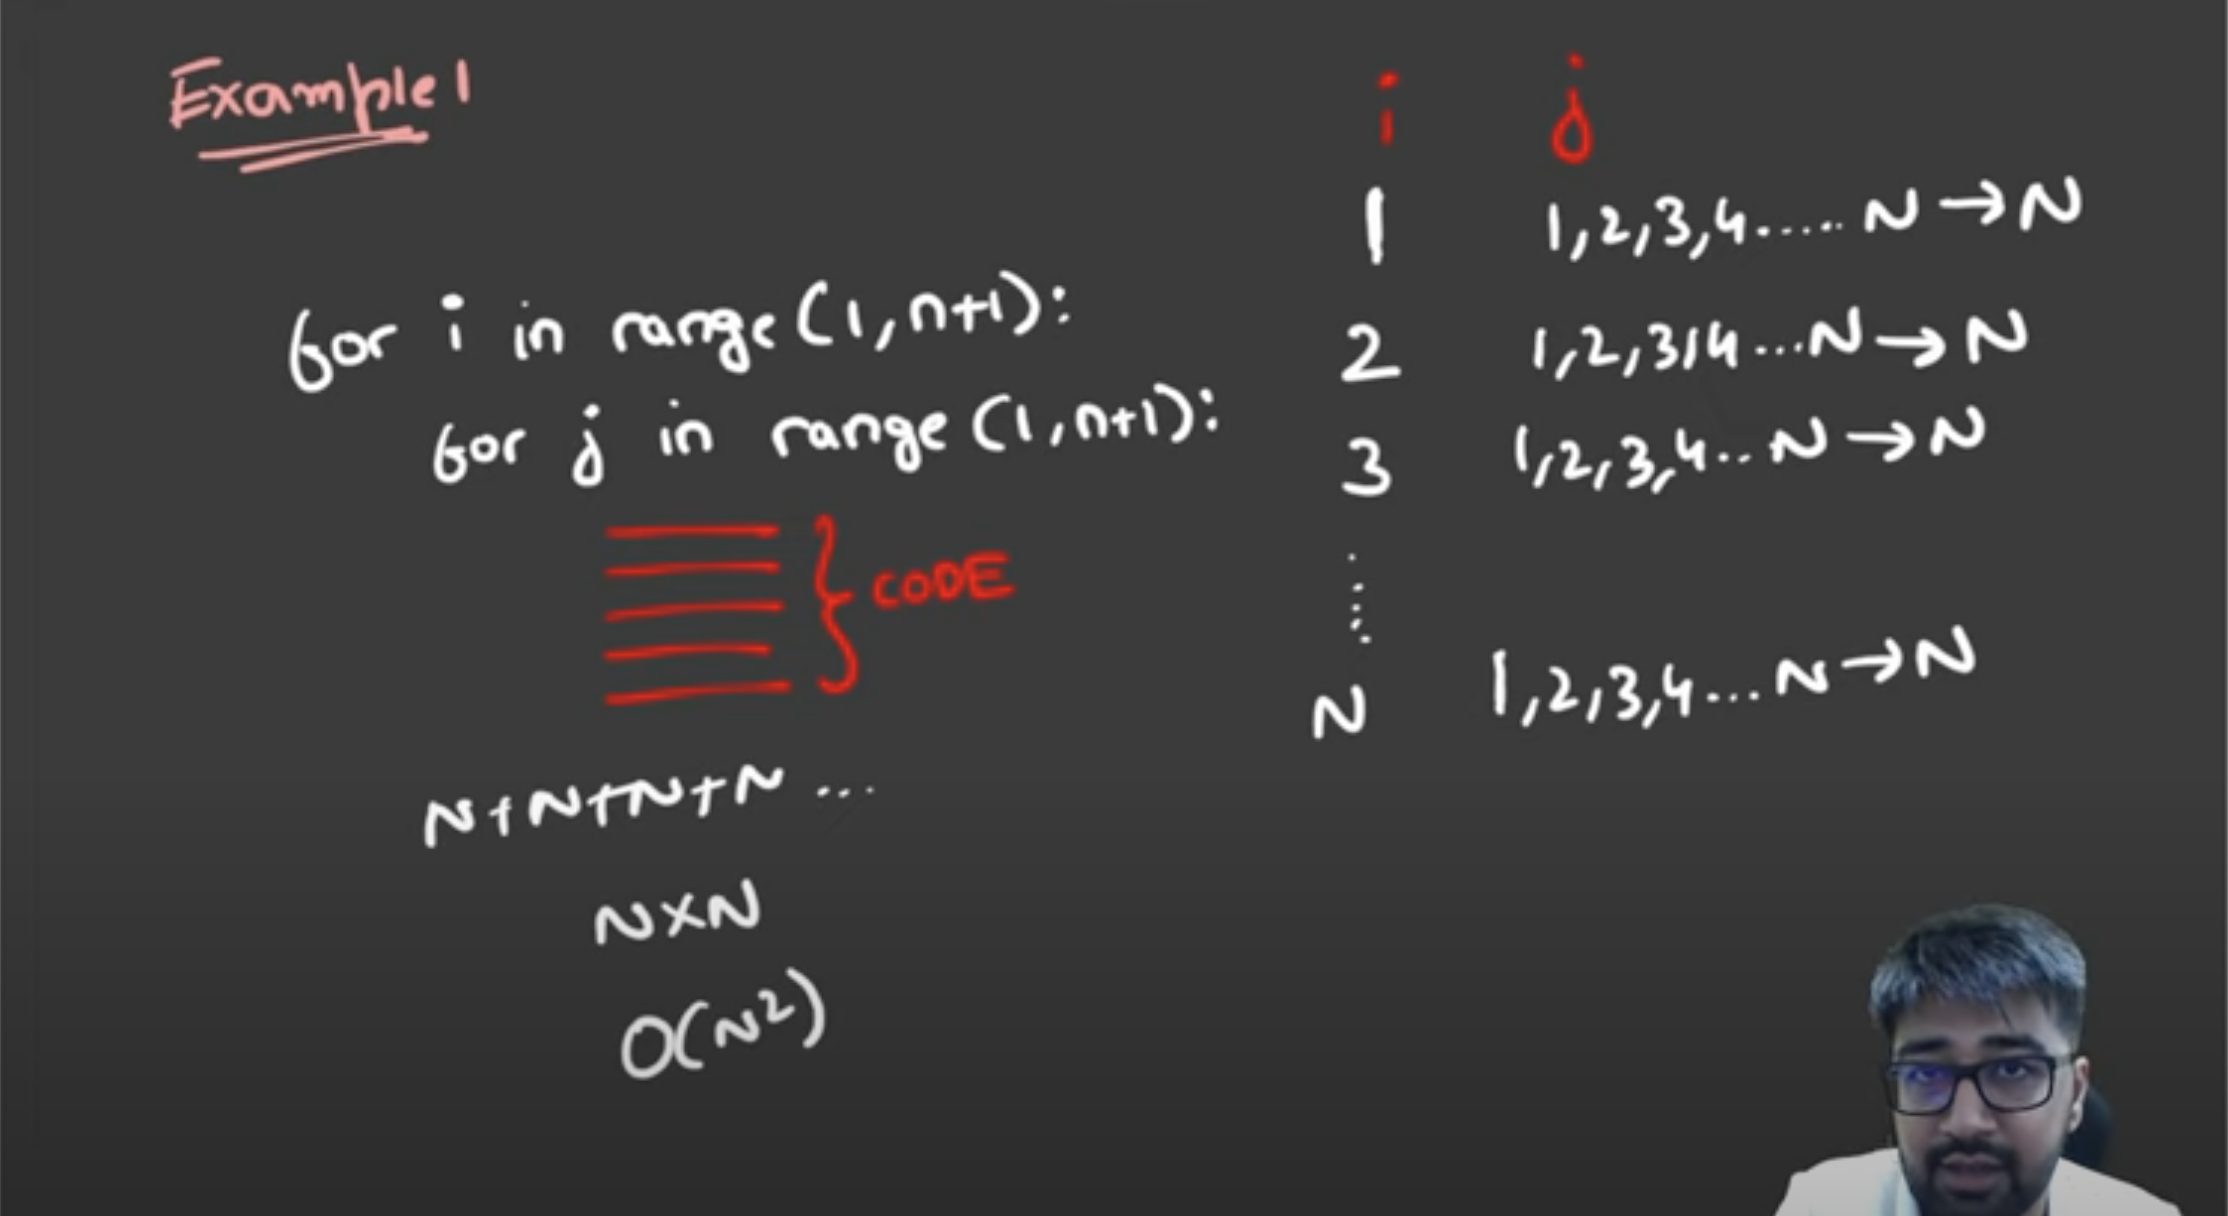 Example 1
for i in range(1,n+1):
for j in range(1,n+1):
CODE
N+N+N+N ...
N×N
O(N²)
i j
1 1,2,3,4..... N→N
2 1,2,3,4...N→N
3 1,2,3,4..N→N
N 1,2,3,4...N→N